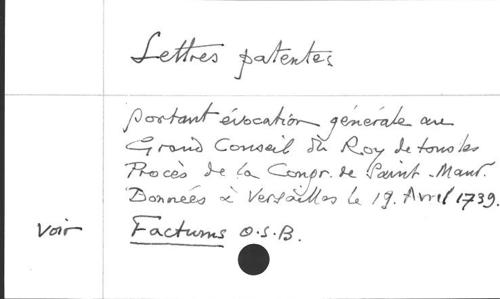 Lettres patentes
portant évocation générale au
Grand Conseil du Roy de tous les
Procès de la Congr. de Saint-Maur.
Données à Versailles le 19. Avril 1739.
voir Factums O.S.B.